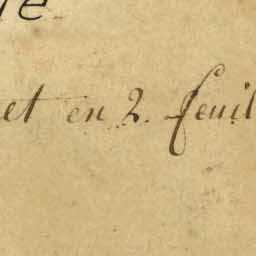 et en 2. feuil